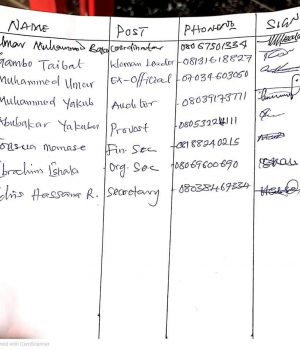 NAME POST PHONE NO SIGN
Umar Muhammad Coordinator - 08067501334
Gambo Taibat Woman Leader - 08131618827
Muhammed Umar EX-Official - 07034603050
Muhammed Yakub Auditor - 08039173771
Abubakar Yakubu Provost - 08053224111
momase Fin. Sec - 08188240215
Ibrahim Ishaka Org. Sec - 08069600690
Idris Hassana R. Secretary - 08038469334
Scanned with CamScanner